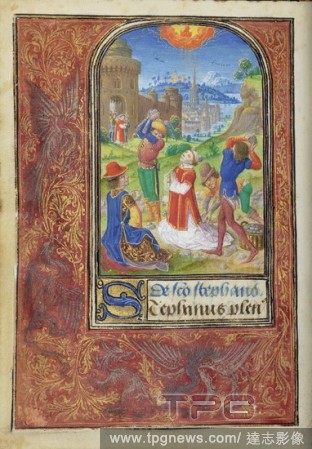 De sco stephano.
Stephanus plen
TPG
www.tpgnews.com/ 達志影像